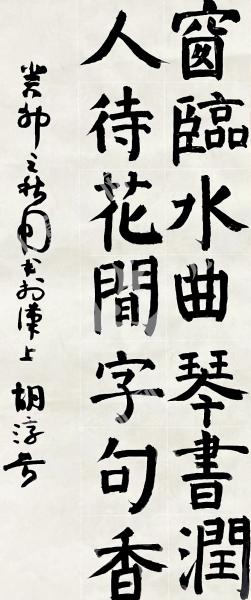 窗臨水曲琴書潤
人待花間字句香
癸卯之秋月書於漢上 胡淳